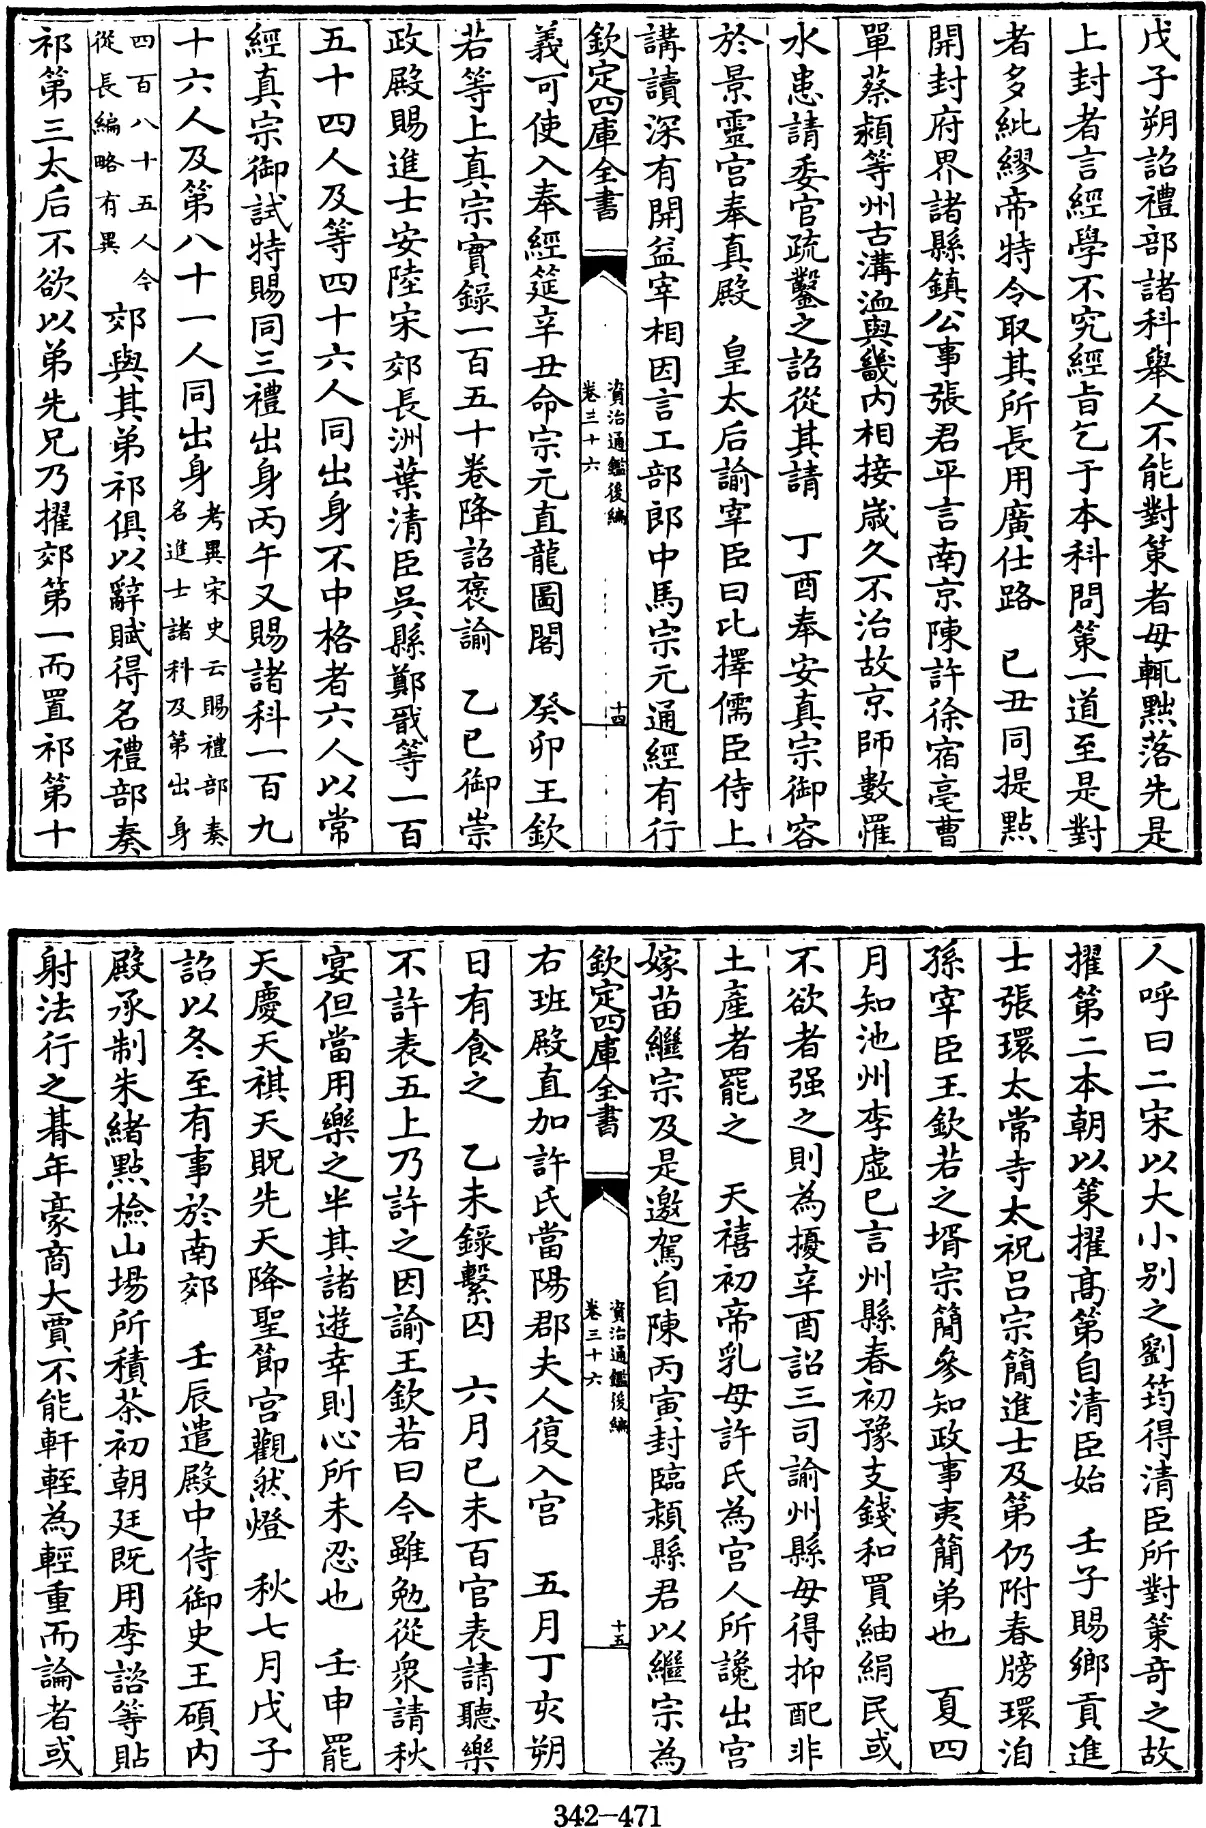 戊子朔詔禮部諸科舉人不能對策者毋輒黜落先是
上封者言經學不究經旨乞于本科問策一道至是對
者多紕繆帝特令取其所長用廣仕路　已丑同提點
開封府界諸縣鎮公事張君平言南京陳許徐宿亳曹
單蔡潁等州古溝洫與畿内相接歲久不治故京師數罹
水患請委官疏鑿之詔從其請　丁酉奉安真宗御容
於景靈宮奉真殿　皇太后諭宰臣曰比擇儒臣侍上
講讀深有開益宰相因言工部郎中馬宗元通經有行
欽定四庫全書
資治通鑑後編
卷三十六
十四
義可使入奉經筵辛丑命宗元直龍圖閣　癸卯王欽
若等上真宗實錄一百五十卷降詔褒諭　乙巳御崇
政殿賜進士安陸宋郊長洲葉清臣吳縣鄭戩等一百
五十四人及等四十六人同出身不中格者六人以常
經真宗御試特賜同三禮出身丙午又賜諸科一百九
十六人及第八十一人同出身考異宋史云賜禮部奏名進士諸科及第出身
四百八十五人今從長編略有異郊與其弟祁俱以辭賦得名禮部奏
祁第三太后不欲以弟先兄乃擢郊第一而置祁第十
人呼曰二宋以大小别之劉筠得清臣所對策奇之故
擢第二本朝以策擢髙第自清臣始　壬子賜鄉貢進
士張環太常寺太祝吕宗簡進士及第仍附春牓環洎
孫宰臣王欽若之壻宗簡參知政事夷簡弟也　夏四
月知池州李虛已言州縣春初豫支錢和買紬絹民或
不欲者强之則為擾辛酉詔三司諭州縣毋得抑配非
土產者罷之　天禧初帝乳母許氏為宫人所讒出宫
嫁苗繼宗及是邀駕自陳丙寅封臨潁縣君以繼宗為
欽定四庫全書
資治通鑑後編
卷三十六
十五
右班殿直加許氏當陽郡夫人復入宮　五月丁亥朔
日有食之　乙未錄繫囚　六月已未百官表請聽樂
不許表五上乃許之因諭王欽若曰今雖勉從衆請秋
宴但當用樂之半其諸逰幸則心所未忍也　壬申罷
天慶天祺天貺先天降聖節宫觀然燈　秋七月戊子
詔以冬至有事於南郊　壬辰遣殿中侍御史王碩内
殿承制朱緒點檢山場所積茶初朝廷既用李諮等貼
射法行之朞年豪商大賈不能軒輊為輕重而論者或
342-471